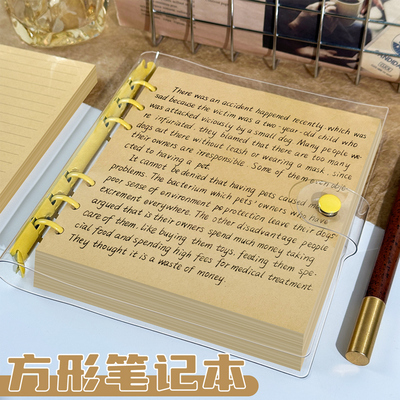 There was an accident happened recently, which was
sad because the victim was a two-year-old child who
was attacked viciously by a small dog. Many people we-
re infuriated, they blamed that there are too many
dogs out there without leash or wearing a mask, since
their owners are irresponsible. Some of them obje-
cted to having a pet.
It cannot be denied that having pets caused
problems. The bacterium which pets' owners who have
poor sense of environment protection leave their dogs'
excrement everywhere. The other disadvantage people
argued that is their owners spend much money taking
care of them, like buying them toys, feeding them spe-
cial food and spending high fees for medical treatment.
They thought it is a waste of money.
方形笔记本